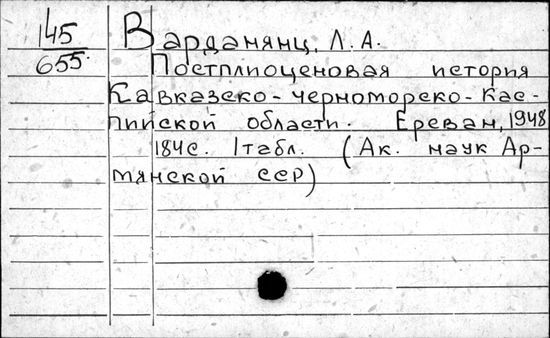 145
655.
Варданянц, Л. А.
Постплиоценовая история
Кавказско-черноморско-Кас-
пийской области. Ереван, 1948
184с. 1табл. (Ак. наук Ар-
мянской ССР)